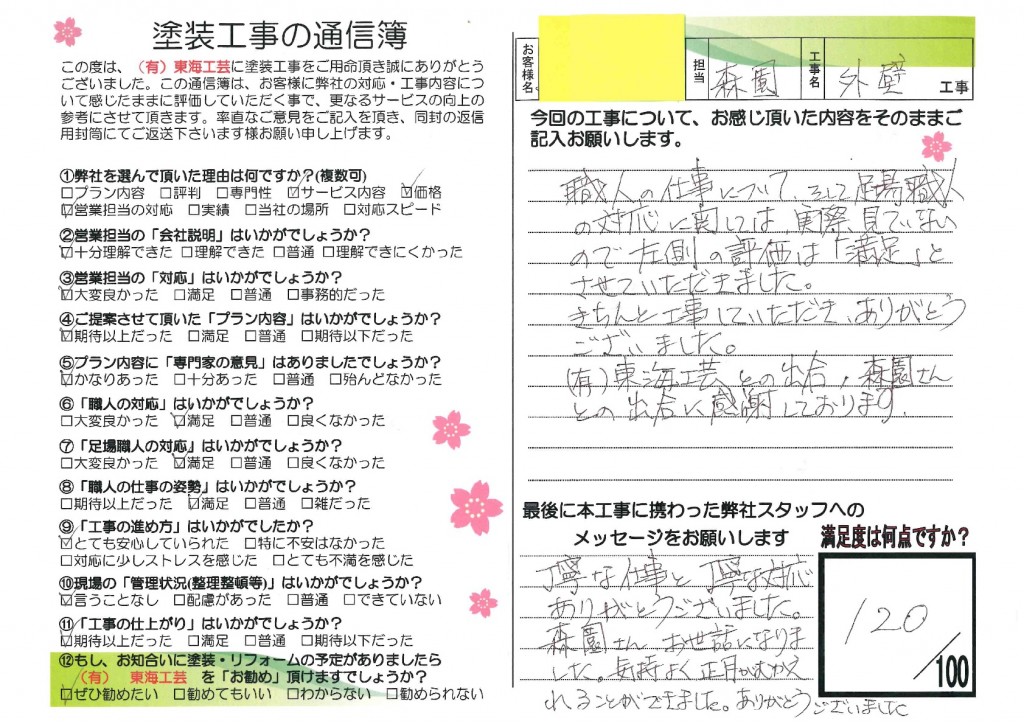 塗装工事の通信簿
この度は、(有)東海工芸に塗装工事をご用命頂き誠にありがとう
ございました。この通信簿は、お客様に弊社の対応・工事内容につ
いて感じたままに評価していただく事で、更なるサービスの向上の
参考にさせて頂きます。率直なご意見をご記入を頂き、同封の返信
用封筒にてご返送下さいます様お願い申し上げます。
①弊社を選んで頂いた理由は何ですか?(複数可)
□プラン内容 □評判 □専門性 ☑サービス内容 ☑価格
☑営業担当の対応 □実績 □当社の場所 □対応スピード
②営業担当の「会社説明」はいかがでしょうか?
☑十分理解できた □理解できた □普通 □理解できにくかった
③営業担当の「対応」はいかがでしょうか?
☑大変良かった □満足 □普通 □事務的だった
④ご提案させて頂いた「プラン内容」はいかがでしょうか?
☑期待以上だった □満足 □普通 □期待以下だった
⑤プラン内容に「専門家の意見」はありましたでしょうか?
☑かなりあった □十分あった □普通 □殆んどなかった
⑥「職人の対応」はいかがでしょうか?
□大変良かった ☑満足 □普通 □良くなかった
⑦「足場職人の対応」はいかがでしょうか?
□大変良かった ☑満足 □普通 □良くなかった
⑧「職人の仕事の姿勢」はいかがでしょうか?
□期待以上だった ☑満足 □普通 □雑だった
⑨「工事の進め方」はいかがでしたか?
☑とても安心していられた □特に不安はなかった
□対応に少しストレスを感じた □とても不満を感じた
⑩現場の「管理状況(整理整頓等)」はいかがでしょうか?
☑言うことなし □配慮があった □普通 □できていない
⑪「工事の仕上がり」はいかがでしょうか?
☑期待以上だった □満足 □普通 □期待以下だった
⑫もし、お知合いに塗装・リフォームの予定がありましたら
(有) 東海工芸 を「お勧め」頂けますでしょうか?
☑ぜひ勧めたい □勧めてもいい □わからない □勧められない
お客様名 担当 森園 工事名 外壁 工事
今回の工事について、お感じ頂いた内容をそのままご
記入お願いします。
職人の仕事について、そして足場職人
の対応に関しては、実際、見ていない
ので左側の評価は「満足」と
させていただきました。
きちんと工事していただき、ありがとう
ございました。
(有)東海工芸との出合、森園さん
との出合に感謝しております。
最後に本工事に携わった弊社スタッフへの
メッセージをお願いします
丁寧な仕事と丁寧な対応
ありがとうございました。
森園さん、お世話になりま
した。気持よく正月がむかえ
れることができました。ありがとうございました
満足度は何点ですか?
120/100